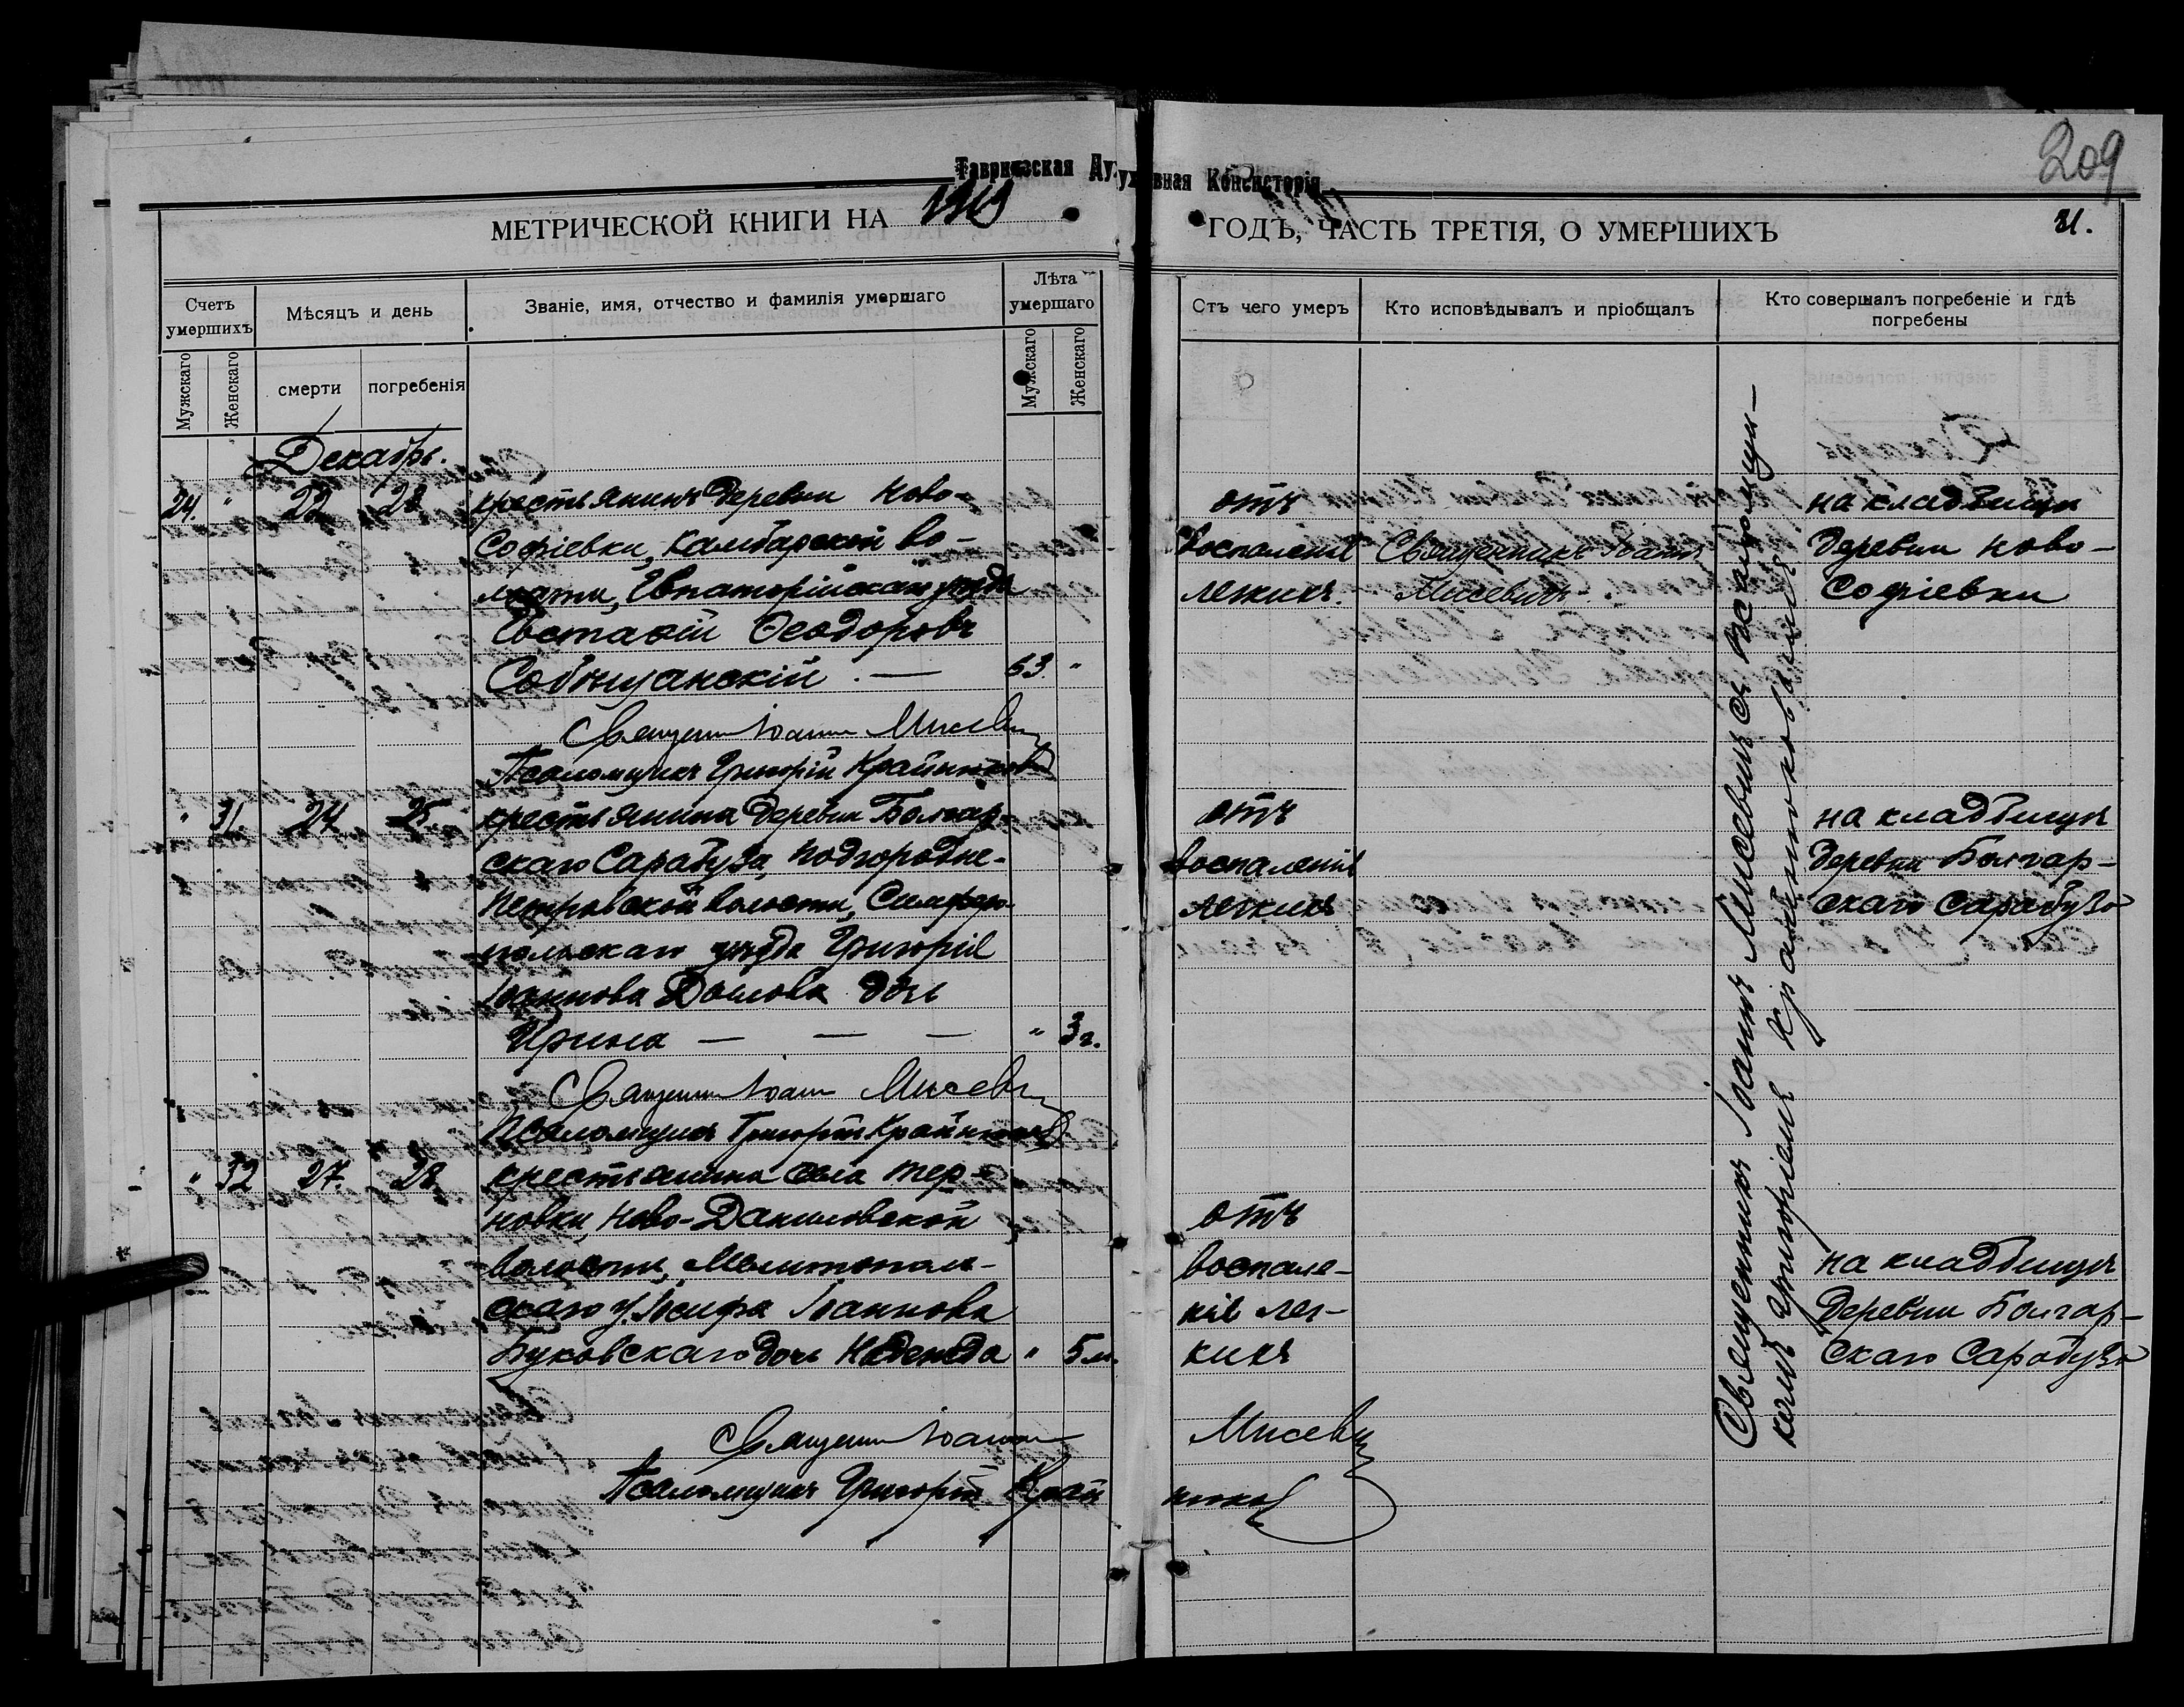 Таврическая Духовная Консисторія
209
МЕТРИЧЕСКОЙ КНИГИ НА
ГОДЪ, ЧАСТЬ ТРЕТІЯ, О УМЕРШИХЪ
Счетъ умершихъ
Мѣсяцъ и день
Званіе, имя, отчество и фамилія умершаго
Лѣта умершаго
Мужскаго
Женскаго
смерти
погребенія
Мужскаго
Женскаго
Отъ чего умеръ
Кто исповѣдывалъ и пріобщалъ
Кто совершалъ погребеніе и гдѣ погребены
Декабрь.
24. " 22 28 крестьянинъ деревни Ново-
Софіевки, Камбарской во-
лости, Евпаторійскаго уѣзда
Евстафій Ѳеодоровъ
63 "
Священникъ Іоаннъ Мисевичъ
Псаломщикъ Григорій
" 31. 24 25. крестьянина деревни Болгар-
скаго Сарабуза, Подгородне-
Петровской волости, Симферо-
польскаго уѣзда Григорія
Іоаннова дочь
Ирина — — — " 3 г.
Священникъ Іоаннъ Мисевичъ
Псаломщикъ Григорій
" 32 27. 28 крестьянина села Тер-
новки, Ново-Даниловской
волости, Мелитополь-
скаго у. Іосифа Іоаннова
Буковскаго дочь Надежда " 5 м.
Священникъ Іоаннъ Мисевичъ
Псаломщикъ Григорій
отъ
воспаленія
легкихъ.
Священникъ Іоаннъ
Мисевичъ.
на кладбищѣ
деревни Ново-
Софіевки
отъ
воспаленія
легкихъ
на кладбищѣ
деревни Болгар-
скаго Сарабуза
отъ
воспале-
нія лег-
кихъ
на кладбищѣ
деревни Болгар-
скаго Сарабуза
Священникъ Іоаннъ Мисевичъ съ псаломщи-
комъ Григоріемъ